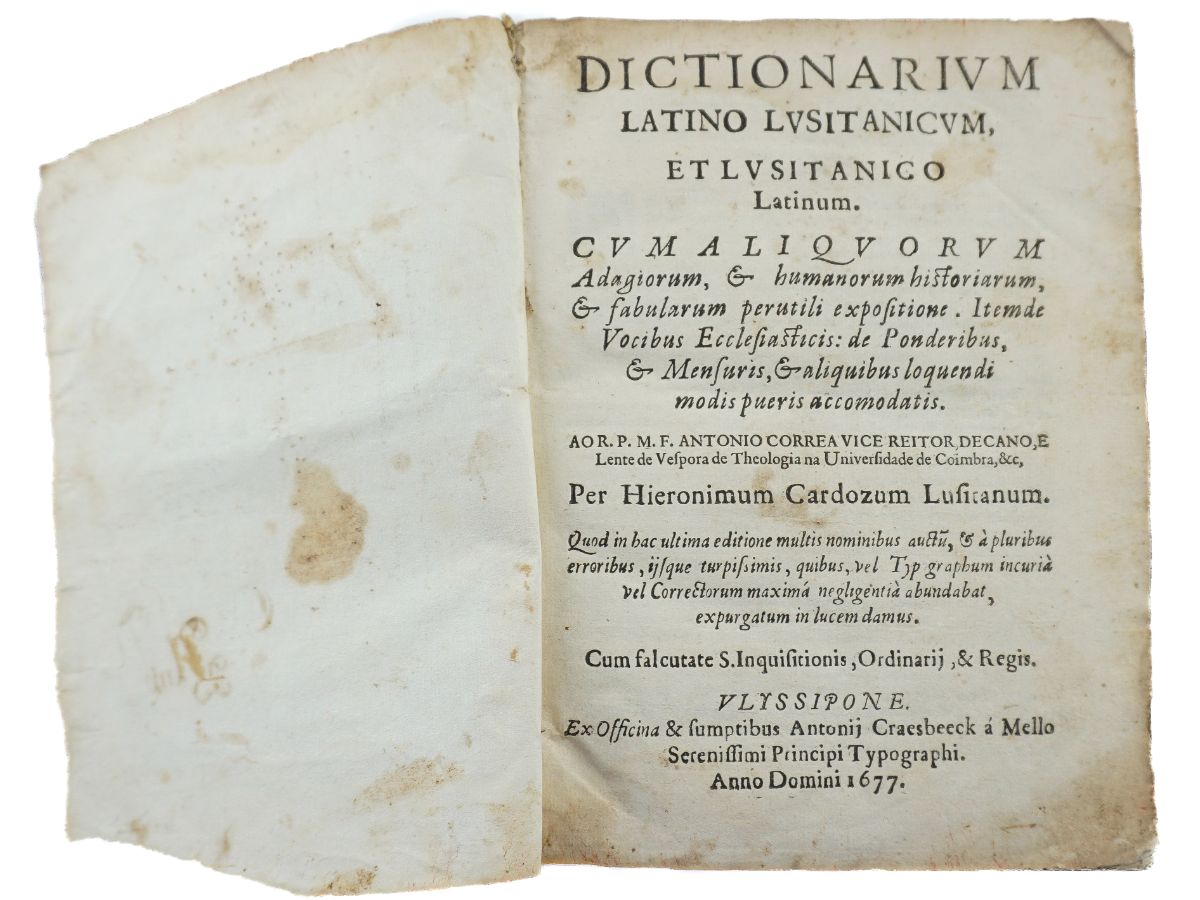 DICTIONARIVM
LATINO LVSITANICVM,
ET LVSITANICO
Latinum.
CVM ALIQVORVM
Adagiorum, & humanorum historiarum,
& fabularum perutili expoſitione. Itemde
Vocibus Eccleſiasticis: de Ponderibus,
& Menſuris, & aliquibus loquendi
modis pueris accomodatis.
AO R. P. M. F. ANTONIO CORREA VICE REITOR, DECANO, E
Lente de Veſpora de Theologia na Univerſidade de Coimbra, &c,
Per Hieronimum Cardozum Luſitanum.
Quod in hac ultima editione multis nominibus auctũ, & à pluribus
erroribus, ijſque turpiſsimis, quibus, vel Typ graphum incurià
vel Correctorum maximá negligentià abundabat,
expurgatum in lucem damus.
Cum falcutate S. Inquiſitionis, Ordinarij, & Regis.
VLYSSIPONE.
Ex Officina & ſumptibus Antonij Craesbeeck á Mello
Sereniſſimi Principi Typographi.
Anno Domini 1677.